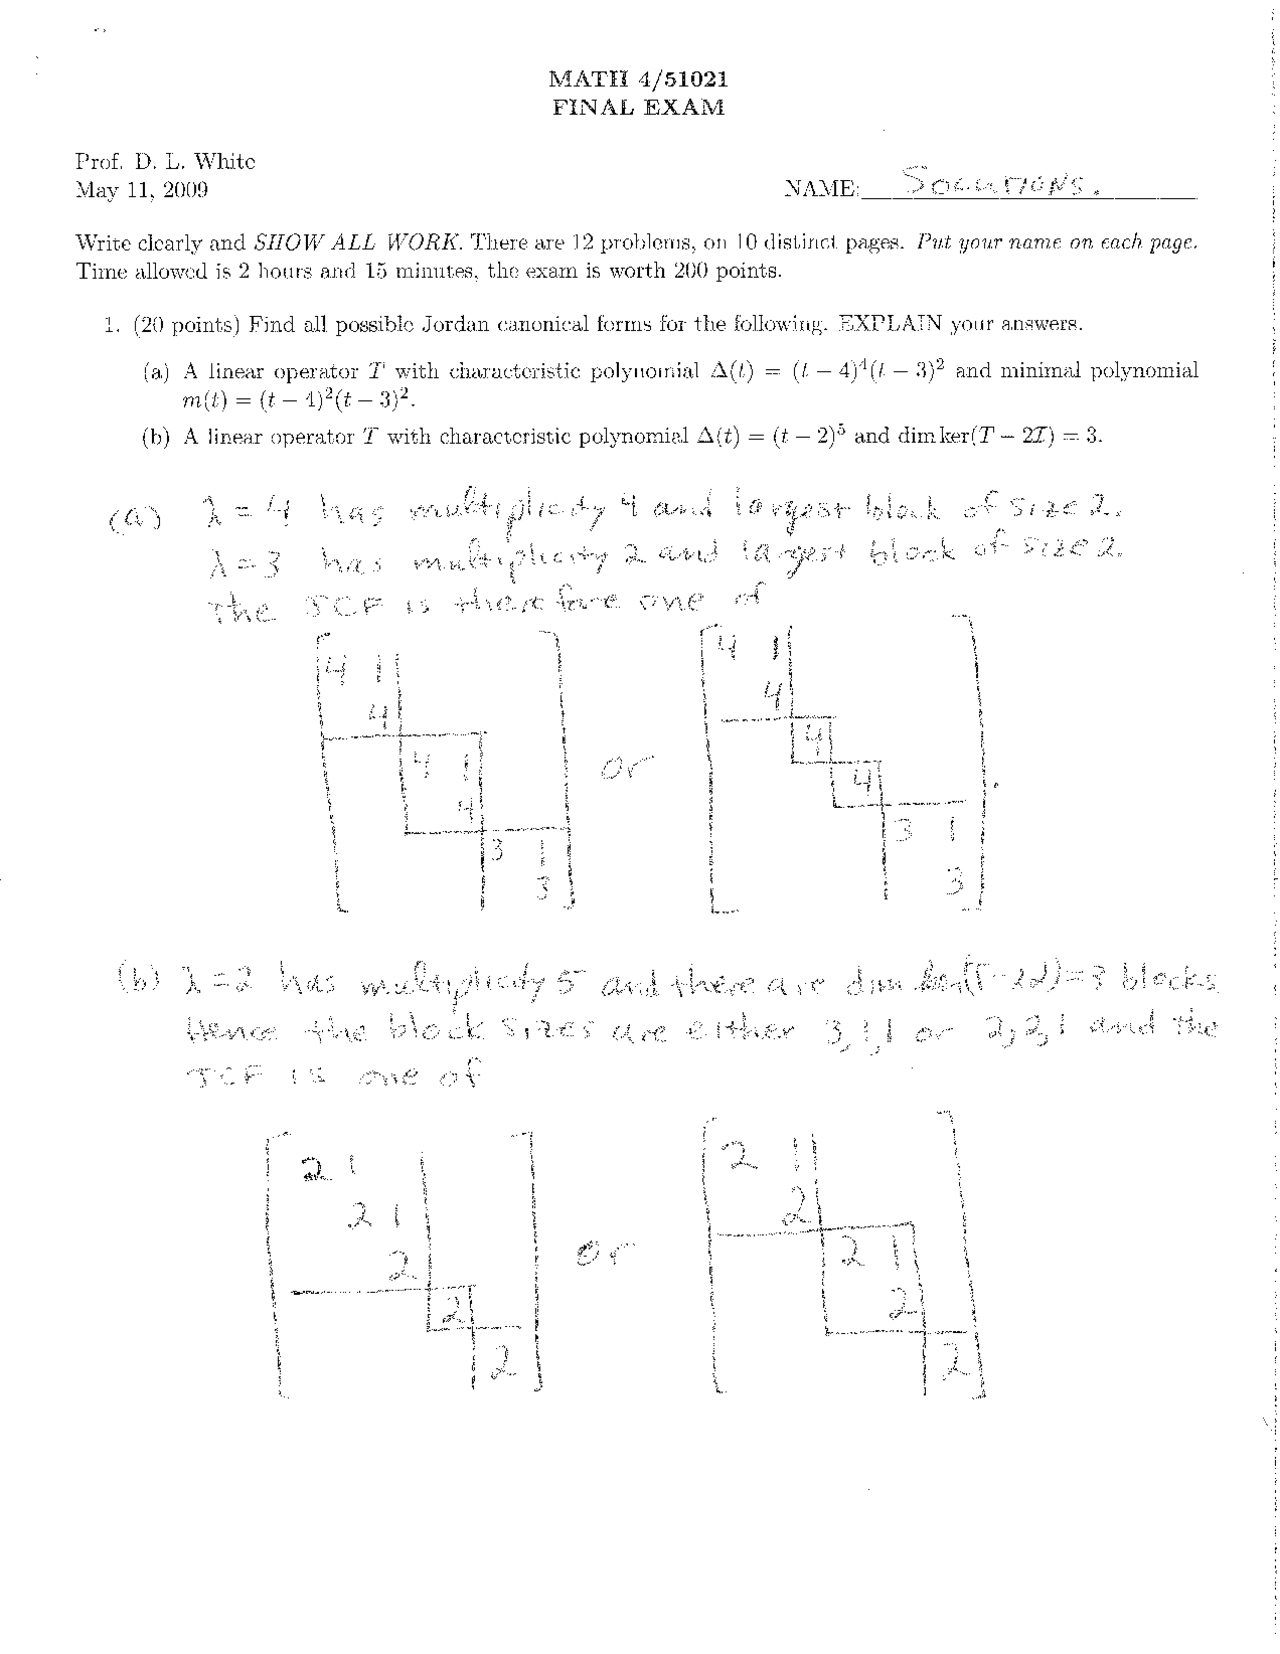 MATH 4/51021
FINAL EXAM
Prof. D. L. White
May 11, 2009
NAME: SOLUTIONS.
Write clearly and SHOW ALL WORK. There are 12 problems, on 10 distinct pages. Put your name on each page.
Time allowed is 2 hours and 15 minutes, the exam is worth 200 points.
1. (20 points) Find all possible Jordan canonical forms for the following. EXPLAIN your answers.
(a) A linear operator T with characteristic polynomial Δ(t) = (t − 4)⁴(t − 3)² and minimal polynomial
m(t) = (t − 4)²(t − 3)².
(b) A linear operator T with characteristic polynomial Δ(t) = (t − 2)⁵ and dim ker(T − 2I) = 3.
(a) λ = 4 has multiplicity 4 and largest block of size 2.
λ = 3 has multiplicity 2 and largest block of size 2.
The JCF is therefore one of
4 1
4
4 1
4
3 1
3
or
4 1
4
4
4
3 1
3
.
(b) λ = 2 has multiplicity 5 and there are dim ker(T − 2I) = 3 blocks
Hence the block sizes are either 3,1,1 or 2,2,1 and the
JCF is one of
2 1
2 1
2
2
2
or
2 1
2
2 1
2
2